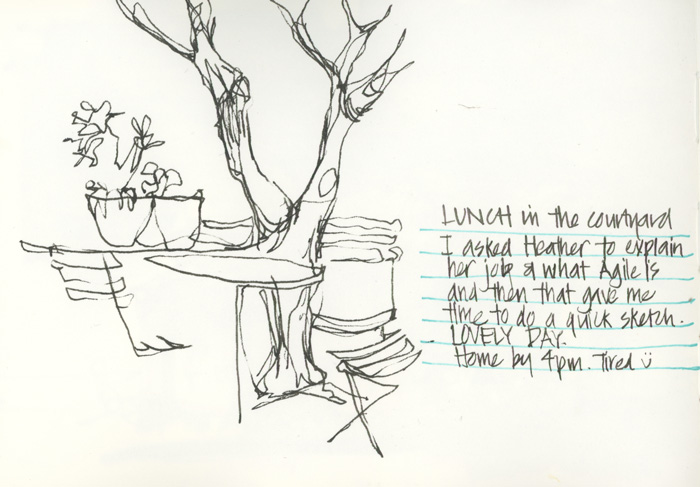 LUNCH in the courtyard
I asked Heather to explain
her job & what Agile is
and then that gave me
time to do a quick sketch.
LOVELY DAY.
Home by 4pm. Tired